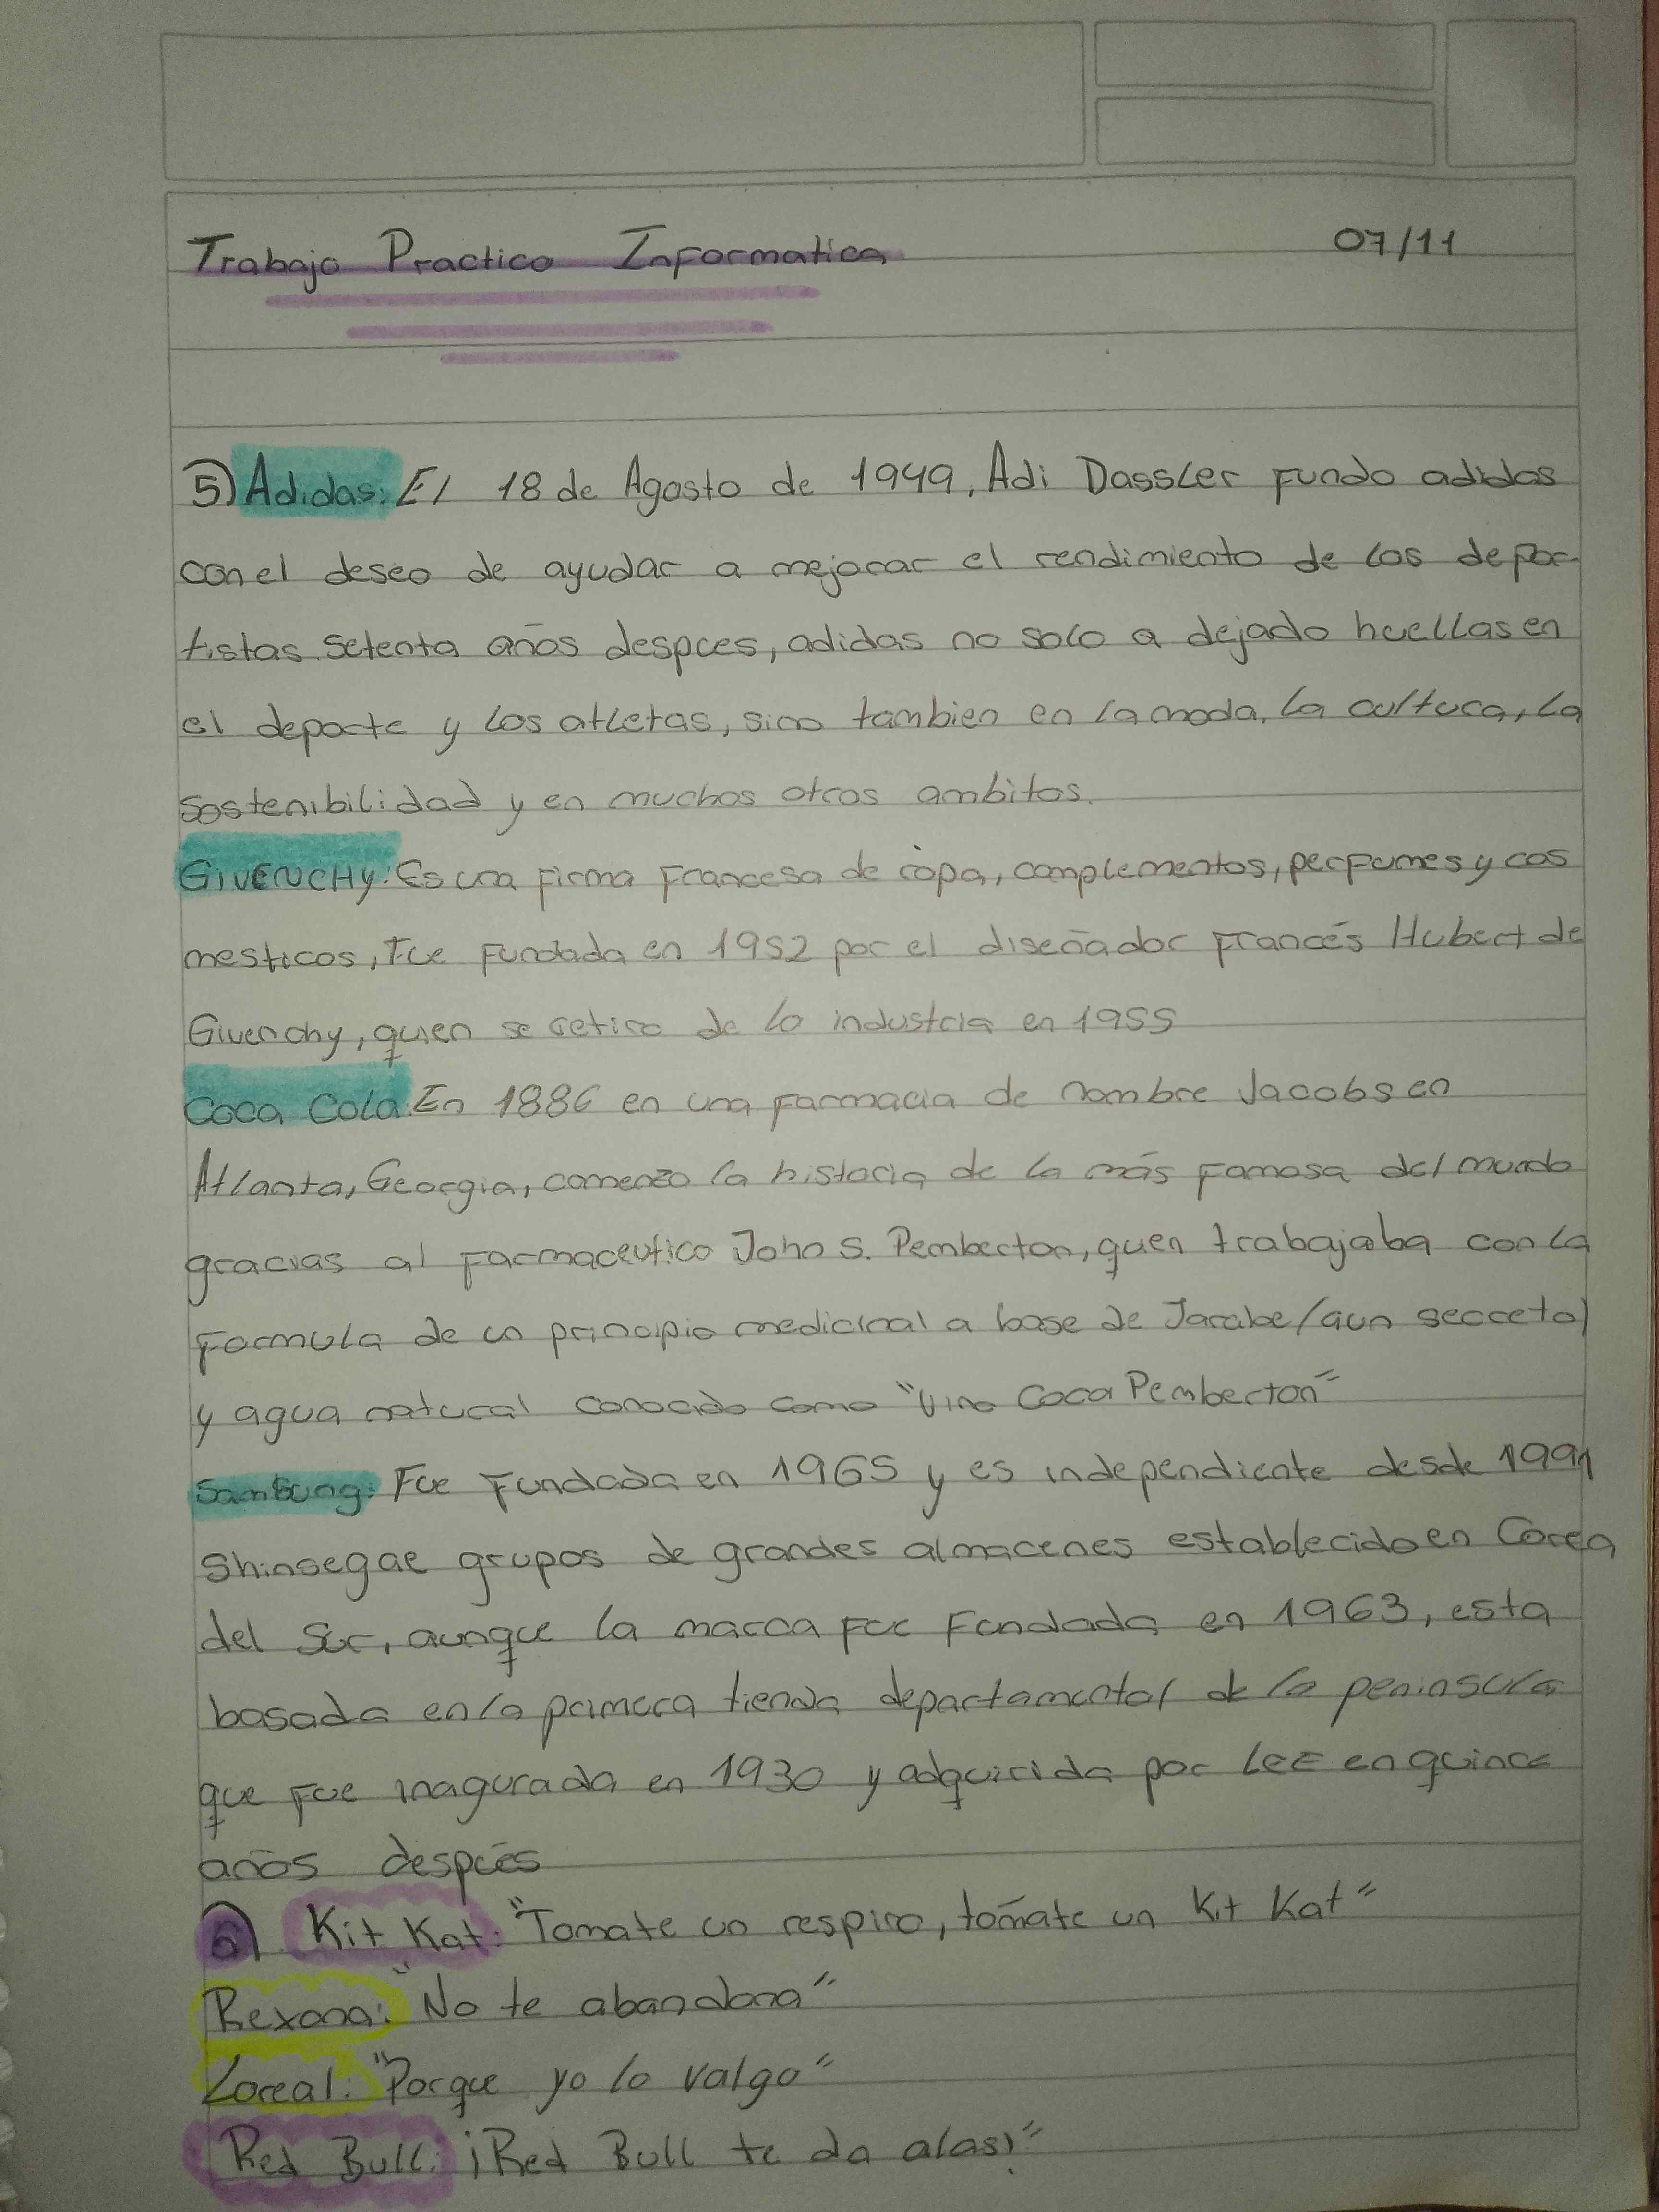 Trabajo Practico Informatica 07/11
5) Adidas: El 18 de Agosto de 1949, Adi Dassler Fundo adidas
con el deseo de ayudar a mejorar el rendimiento de los depor-
tistas. Setenta años despues, adidas no solo a dejado huellas en
el deporte y los atletas, sino tambien en la moda, la cultura, la
sostenibilidad y en muchos otros ambitos.
GIVENCHY: Es una Firma Francesa de ropa, complementos, perfumes y cos
mesticos, Fue Fundada en 1952 por el diseñador Francés Hubert de
Givenchy, quien se retiro de la industria en 1955
Coca Cola: En 1886 en una Farmacia de nombre Jacobs en
Atlanta, Georgia, comenzo la historia de la más Famosa del mundo
gracias al Farmaceutico John S. Pemberton, quen trabajaba con la
Formula de un principio medicinal a base de Jarabe (aun secreto)
y agua natural conocido como "Vino Coca Pemberton"
Samsung: Fue Fundada en 1965 y es independiente desde 1991
Shinsegae grupos de grandes almacenes establecido en Corea
del Sur, aunque la marca Fue Fundada en 1963, esta
basada en la primera tienda departamental de la peninsula
que Fue inagurada en 1930 y adquirida por LEE en quince
años después
6) Kit Kat: "Tomate un respiro, tómate un Kit Kat"
Rexona: "No te abandona"
Loreal: "Porque yo lo valgo"
Red Bull: ¡Red Bull te da alas!"